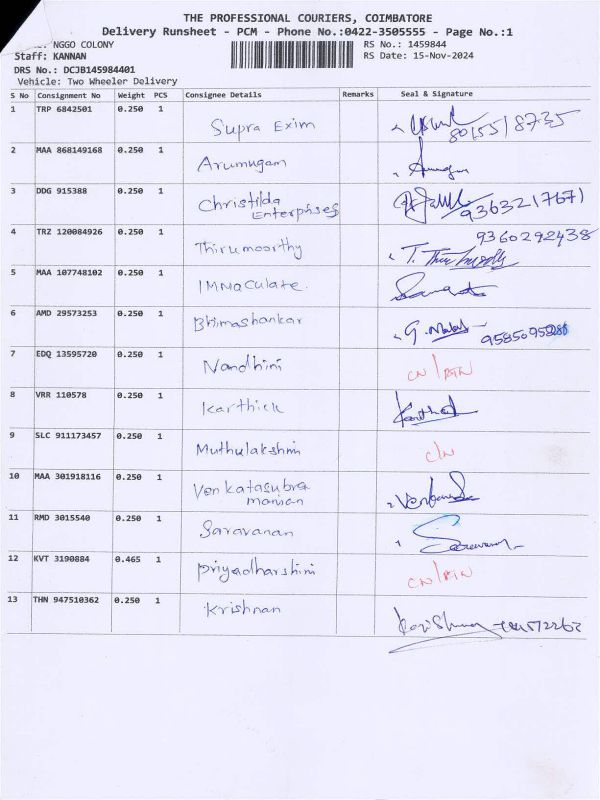 THE PROFESSIONAL COURIERS, COIMBATORE
Delivery Runsheet - PCM - Phone No.:0422-3505555 - Page No.:1
NGGO COLONY
RS No.: 1459844
Staff: KANNAN
RS Date: 15-Nov-2024
DRS No.: DCJB145984401
Vehicle: Two Wheeler Delivery
S No Consignment No Weight PCS Consignee Details Remarks Seal & Signature
1 TRP 6842501 0.250 1
Supra Exim 8015518735
2 MAA 868149168 0.250 1
Arumugam
3 DDG 915388 0.250 1
Christilda
Enterprises 9363217671
4 TRZ 120084926 0.250 1 9360292438
Thirumoorthy T.
5 MAA 107748102 0.250 1
Immaculate.
6 AMD 29573253 0.250 1
Bhimashankar G.
7 EDQ 13595720 0.250 1
Nandhini CN/RTN
8 VRR 110578 0.250 1
Karthick
9 SLC 911173457 0.250 1
Muthulakshmi C/N
10 MAA 301918116 0.250 1
Venkatasubra
manian
11 RMD 3015540 0.250 1
Saravanan
12 KVT 3190884 0.465 1
Priyadharshini CN/RTN
13 THN 947510362 0.250 1
Krishnan